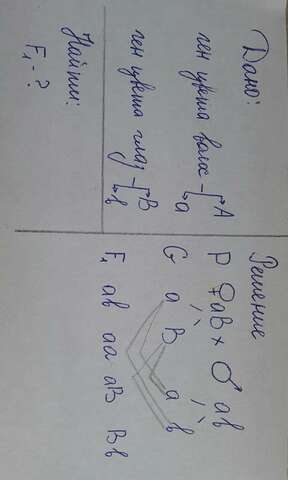 Дано:
ген цвета волос A
a
ген цвета глаз B
b
Найти:
F₁ - ?
Решение
P ♀aB × ♂ ab
G a B a b
F₁ ab aa aB Bb